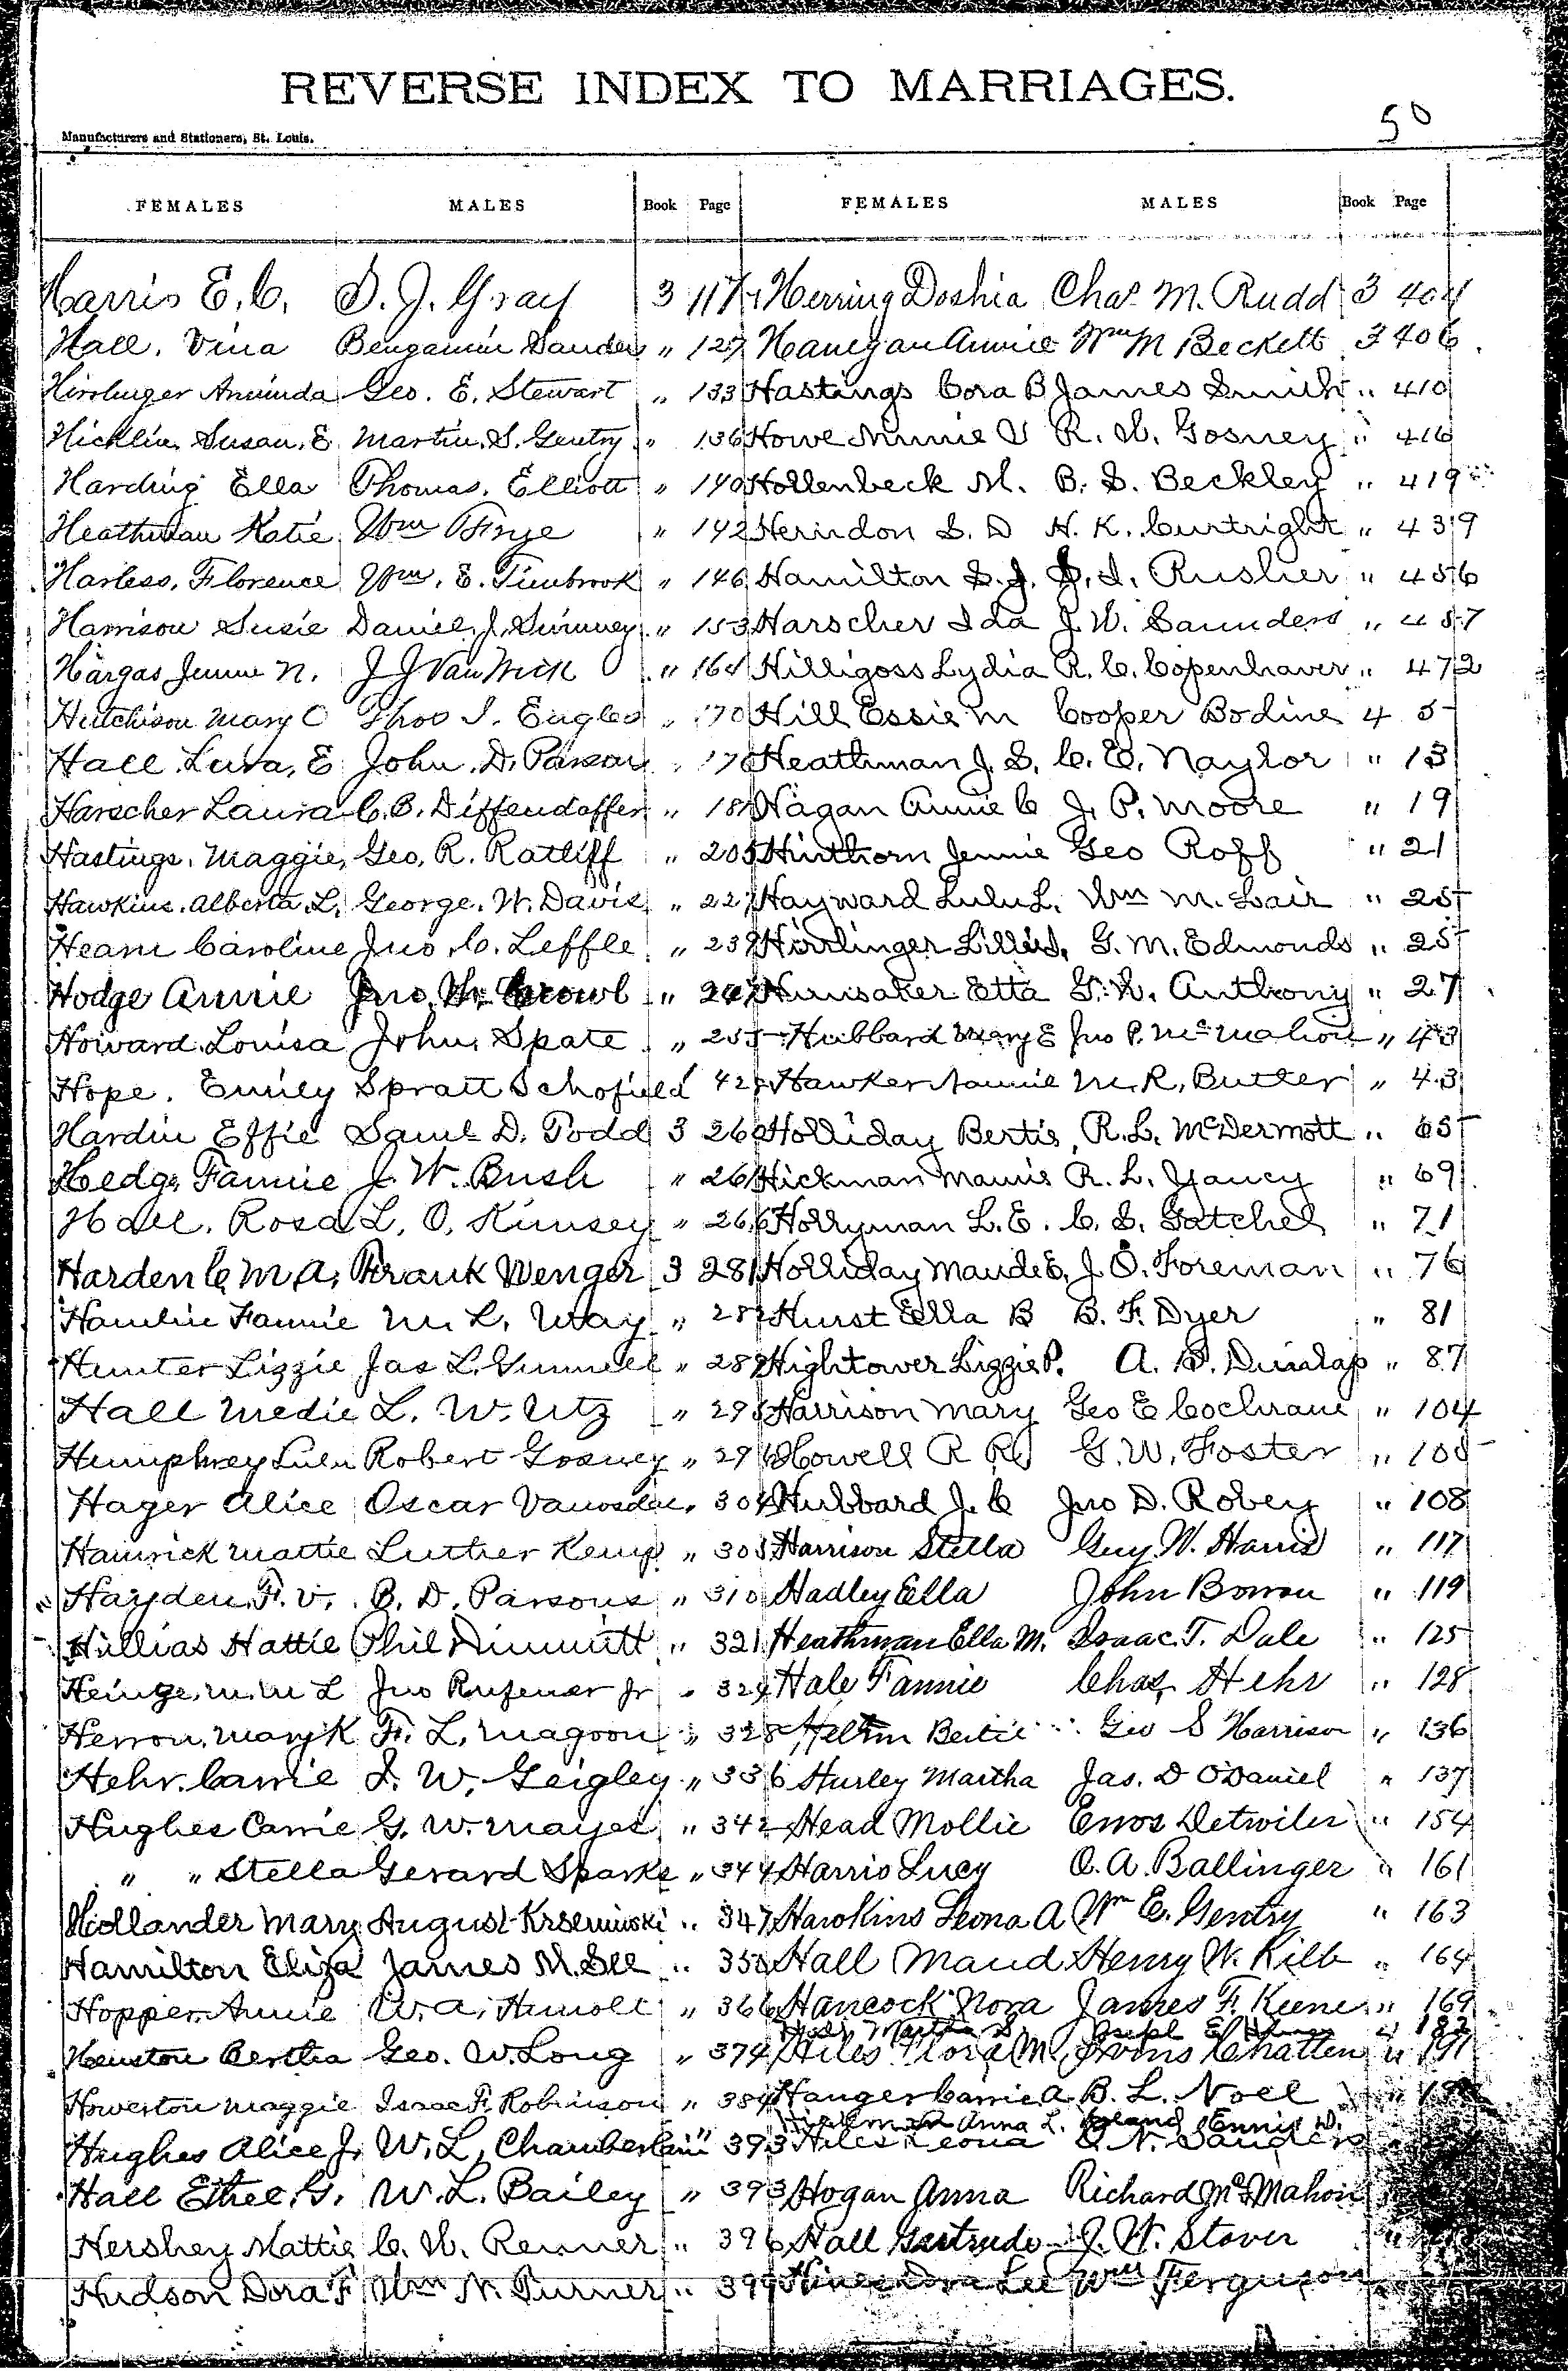 REVERSE INDEX TO MARRIAGES.
50
Manufacturers and Stationers, St. Louis.
FEMALES MALES Book Page FEMALES MALES Book Page
Harris E. C. S. J. Gray 3 117
Hall, Vina Bengamin Sanders " 127
Hirrlinger Aminda Geo. E. Stewart " 133
Hicklin, Susan, E. Martin. S. Gentry " 136
Harding Ella Thomas. Elliott " 140
Heathman Katie Wm Frye " 142
Harless, Florence Wm. E. Timbrook " 146
Harrison Susie Daniel, J. " 153
Hargas Jennie N. J J Van Wick " 164
Hutchison Mary C Thos J. Eagles " 170
Hall Lura, E John. D. " 176
Harscher Laura C. B. Diffendaffer " 181
Hastings, Maggie, Geo. R. Ratliff " 205
Hawkins. Alberta. L. George. W. Davis " 227
Hearn Caroline Jno. C. Leffle " 239
Hodge Annie Jno. Crowl "
Howard Louisa John Spate " 255
Hope. Emily Spratt Schofield 42
Hardin Effie Saml D. Todd 3 260
Hedge Fannie J. W. Bush " 261
Hall, Rosa L. O. Kimsey " 266
Harden C. M. A. Frank Wenger 3 281
Hamlin Fannie M. L. Way " 282
Hunter Lizzie Jas L. Gunnell " 289
Hall Medie L. W. Utz " 295
Humphrey Lulu Robert Gosney " 296
Hager Alice Oscar Vanosdol, 304
Hamrick Mattie Luther Kemp " 305
Hayden. F. V. B. D. Parsons " 310
Hillias Hattie Phil Dimmitt " 321
Heinge. M. M L Jno Rufener Jr " 324
Herron, Mary K F. L. Magoon " 328
Hehr. Carrie J. W. Geigley " 336
Hughes Carrie G. W. Mayes " 342
" " Stella Gerard Sparks " 344
Hollander Mary August " 347
Hamilton Eliza James M. See " 350
Hopper. Annie W. A. Arnold " 366
Houston Bertha Geo. W. Long " 374
Howerton Maggie Isaac F. Robinson " 384
Hughes Alice J. W. L. Chamberlain " 393
Hall Ethel. G. W. L. Bailey " 393
Hershey Mattie C. W. Renner " 396
Hudson Dora F Wm N. Turner " 399
Herring Doshia Chas M. Rudd 3 404
Hanegan Annie Wm M Beckett 3 406
Hastings Cora B James Smith " 410
Howe Minnie V R. W. Gosney " 416
Hollenbeck M. B. S. Beckley " 419
Herndon S. D H. K. Curtright " 439
Hamilton S. J. S. I. Rusher " 456
Harscher Ida J. W. Saunders " 457
Hilligoss Lydia R. C. Copenhaver " 472
Hill Essie M Cooper Bodine 4 5
Heathman J. S. C. E. Naylor " 13
Hagan Annie C J. P. Moore " 19
Hinthorn Jennie Geo Roff " 21
Hayward Lulu L. Wm M. Lair " 25
Hirrlinger Lillie G. M. Edmonds " 25
Hunsaker Etta G. W. Anthony " 27
Hubbard Mary E Jno P. McMahon " 43
Hawker Nannie M. R. Butler " 43
Holliday Bertie, R. L. McDermott " 65
Hickman Mamie R. L. Yancy " 69
Horryman L. E. C. S. Gatchel " 71
Holliday Maude E. J. O. Foreman " 76
Hurst Ella B B. F. Dyer " 81
Hightower Lizzie P. A. B. Dunlap " 87
Harrison Mary Geo E Cochrane " 104
Howell R R G. W. Foster " 105
Hubbard J. C Jno D. Robey " 108
Harrison Stella Guy W. Harris " 117
Hadley Ella John Bowen " 119
Heathman Ella M. Isaac. T. Dale " 125
Hale Fannie Chas. Hehr " 128
Helton Bertie Geo S Harrison " 136
Hurley Martha Jas. D O'Daniel " 137
Head Mollie Enos Detwiler " 154
Harris Lucy O. A. Ballinger " 161
Hawkins Leona A Wm E. Gentry " 163
Hall Maud Henry W. Kilb " 164
Hancock Nora James F. Keene " 169
Martha S. Joseph E. 4 182
Hiles Flora M. Irvins Chatten " 191
Hanger Carrie A. B. L. Noel "
Anna L. Leland Ennis D.
Hiles Leona O. N. Sanders
Hogan Anna Richard McMahon
Hall Gertrude J. W. Stover "
Hines Dora Lee Wm Ferguson